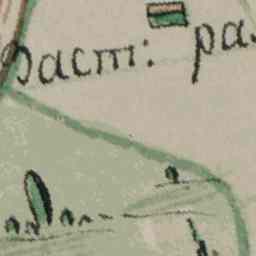 Раст: ра